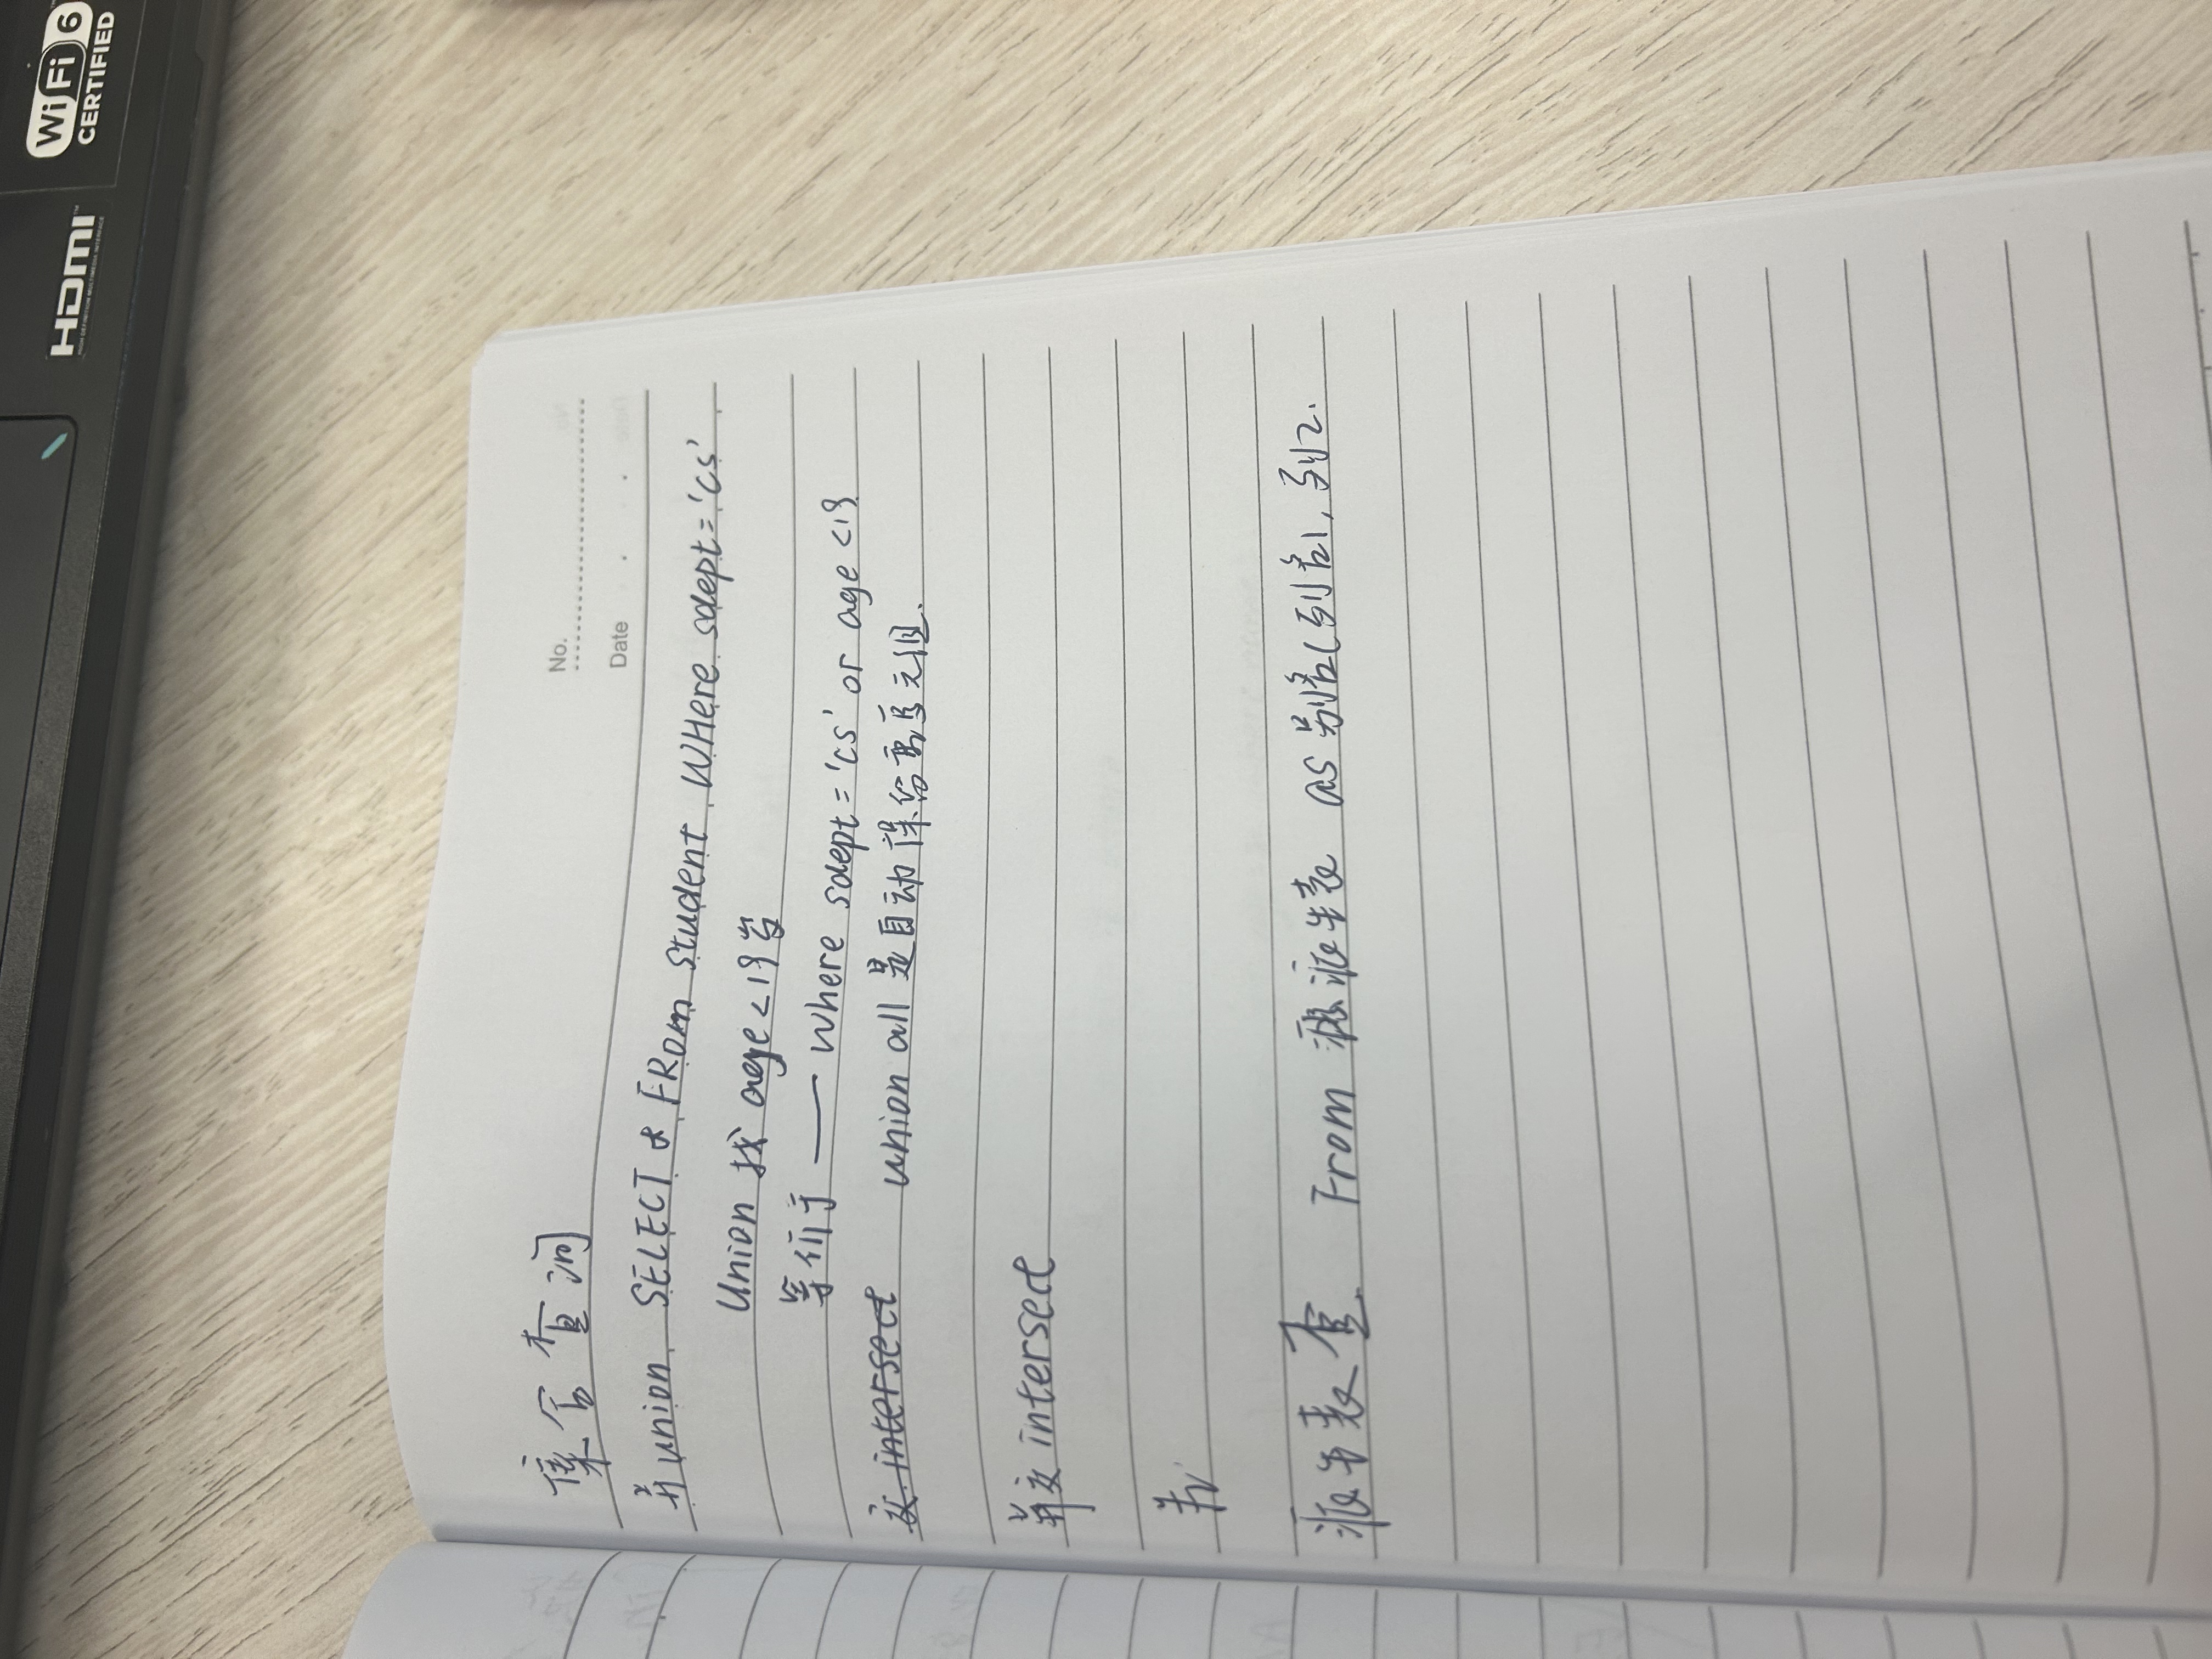 HDMI™
HIGH DEFINITION MULTIMEDIA INTERFACE
WiFi 6™
CERTIFIED
No.
Date
集合查询
并union SELECT * FRom student WHere sdept='cs'
Union 找 age<19岁
等价于 —— where sdept='cs' or age<19
交 intersect union all 是自动保留重复元组.
交 intersect
派生表查 From 派生表 as 别名(列名1, 列2.